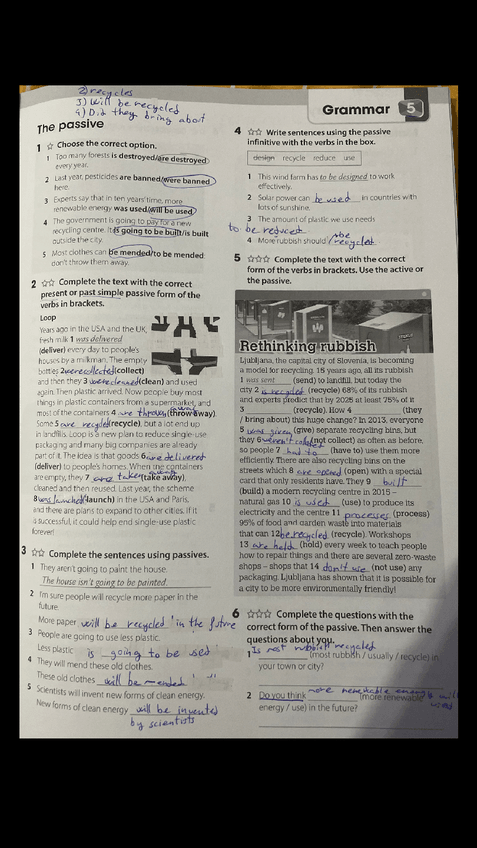 2) recycles
3) Will be recycled
4) Did they bring about
Grammar 5
The passive
1 ☆ Choose the correct option.
1 Too many forests is destroyed/are destroyed
every year.
2 Last year, pesticides are banned/were banned
here.
3 Experts say that in ten years' time, more
renewable energy was used/will be used.
4 The government is going to pay for a new
recycling centre. It is going to be built/is built
outside the city.
5 Most clothes can be mended/to be mended:
don't throw them away.
2 ☆☆ Complete the text with the correct
present or past simple passive form of the
verbs in brackets.
Loop
Years ago in the USA and the UK,
fresh milk 1 was delivered
(deliver) every day to people's
houses by a milkman. The empty
bottles 2 were collected (collect)
and then they 3 were cleaned (clean) and used
again. Then plastic arrived. Now people buy most
things in plastic containers from a supermarket, and
most of the containers 4 are thrown away (throw away).
Some 5 are recycled (recycle), but a lot end up
in landfills. Loop is a new plan to reduce single-use
packaging and many big companies are already
part of it. The idea is that goods 6 are delivered
(deliver) to people's homes. When the containers
are empty, they 7 are taken away (take away),
cleaned and then reused. Last year, the scheme
8 was launched (launch) in the USA and Paris,
and there are plans to expand to other cities. If it
is successful, it could help end single-use plastic
forever!
3 ☆☆ Complete the sentences using passives.
1 They aren't going to paint the house.
The house isn't going to be painted.
2 I'm sure people will recycle more paper in the
future.
More paper will be recycled in the future
3 People are going to use less plastic.
Less plastic is going to be used
4 They will mend these old clothes.
These old clothes will be mended
5 Scientists will invent new forms of clean energy.
New forms of clean energy will be invented
by scientists
4 ☆☆ Write sentences using the passive
infinitive with the verbs in the box.
design recycle reduce use
1 This wind farm has to be designed to work
effectively.
2 Solar power can be used in countries with
lots of sunshine.
3 The amount of plastic we use needs
to be reduced
4 More rubbish should be recycled
5 ☆☆☆ Complete the text with the correct
form of the verbs in brackets. Use the active or
the passive.
Rethinking rubbish
Ljubljana, the capital city of Slovenia, is becoming
a model for recycling. 15 years ago, all its rubbish
1 was sent (send) to landfill, but today the
city 2 is recycled (recycle) 68% of its rubbish
and experts predict that by 2025 at least 75% of it
3 (recycle). How 4 (they
/ bring about) this huge change? In 2013, everyone
5 was given (give) separate recycling bins, but
they 6 weren't collected (not collect) as often as before,
so people 7 had to (have to) use them more
efficiently. There are also recycling bins on the
streets which 8 are opened (open) with a special
card that only residents have. They 9 built
(build) a modern recycling centre in 2015 –
natural gas 10 is used (use) to produce its
electricity and the centre 11 processes (process)
95% of food and garden waste into materials
that can 12 be recycled (recycle). Workshops
13 are held (hold) every week to teach people
how to repair things and there are several zero-waste
shops – shops that 14 don't use (not use) any
packaging. Ljubljana has shown that it is possible for
a city to be more environmentally friendly!
6 ☆☆☆ Complete the questions with the
correct form of the passive. Then answer the
questions about you.
1 Is most rubbish recycled
(most rubbish / usually / recycle) in
your town or city?
2 Do you think more renewable energy will
(more renewable used
energy / use) in the future?